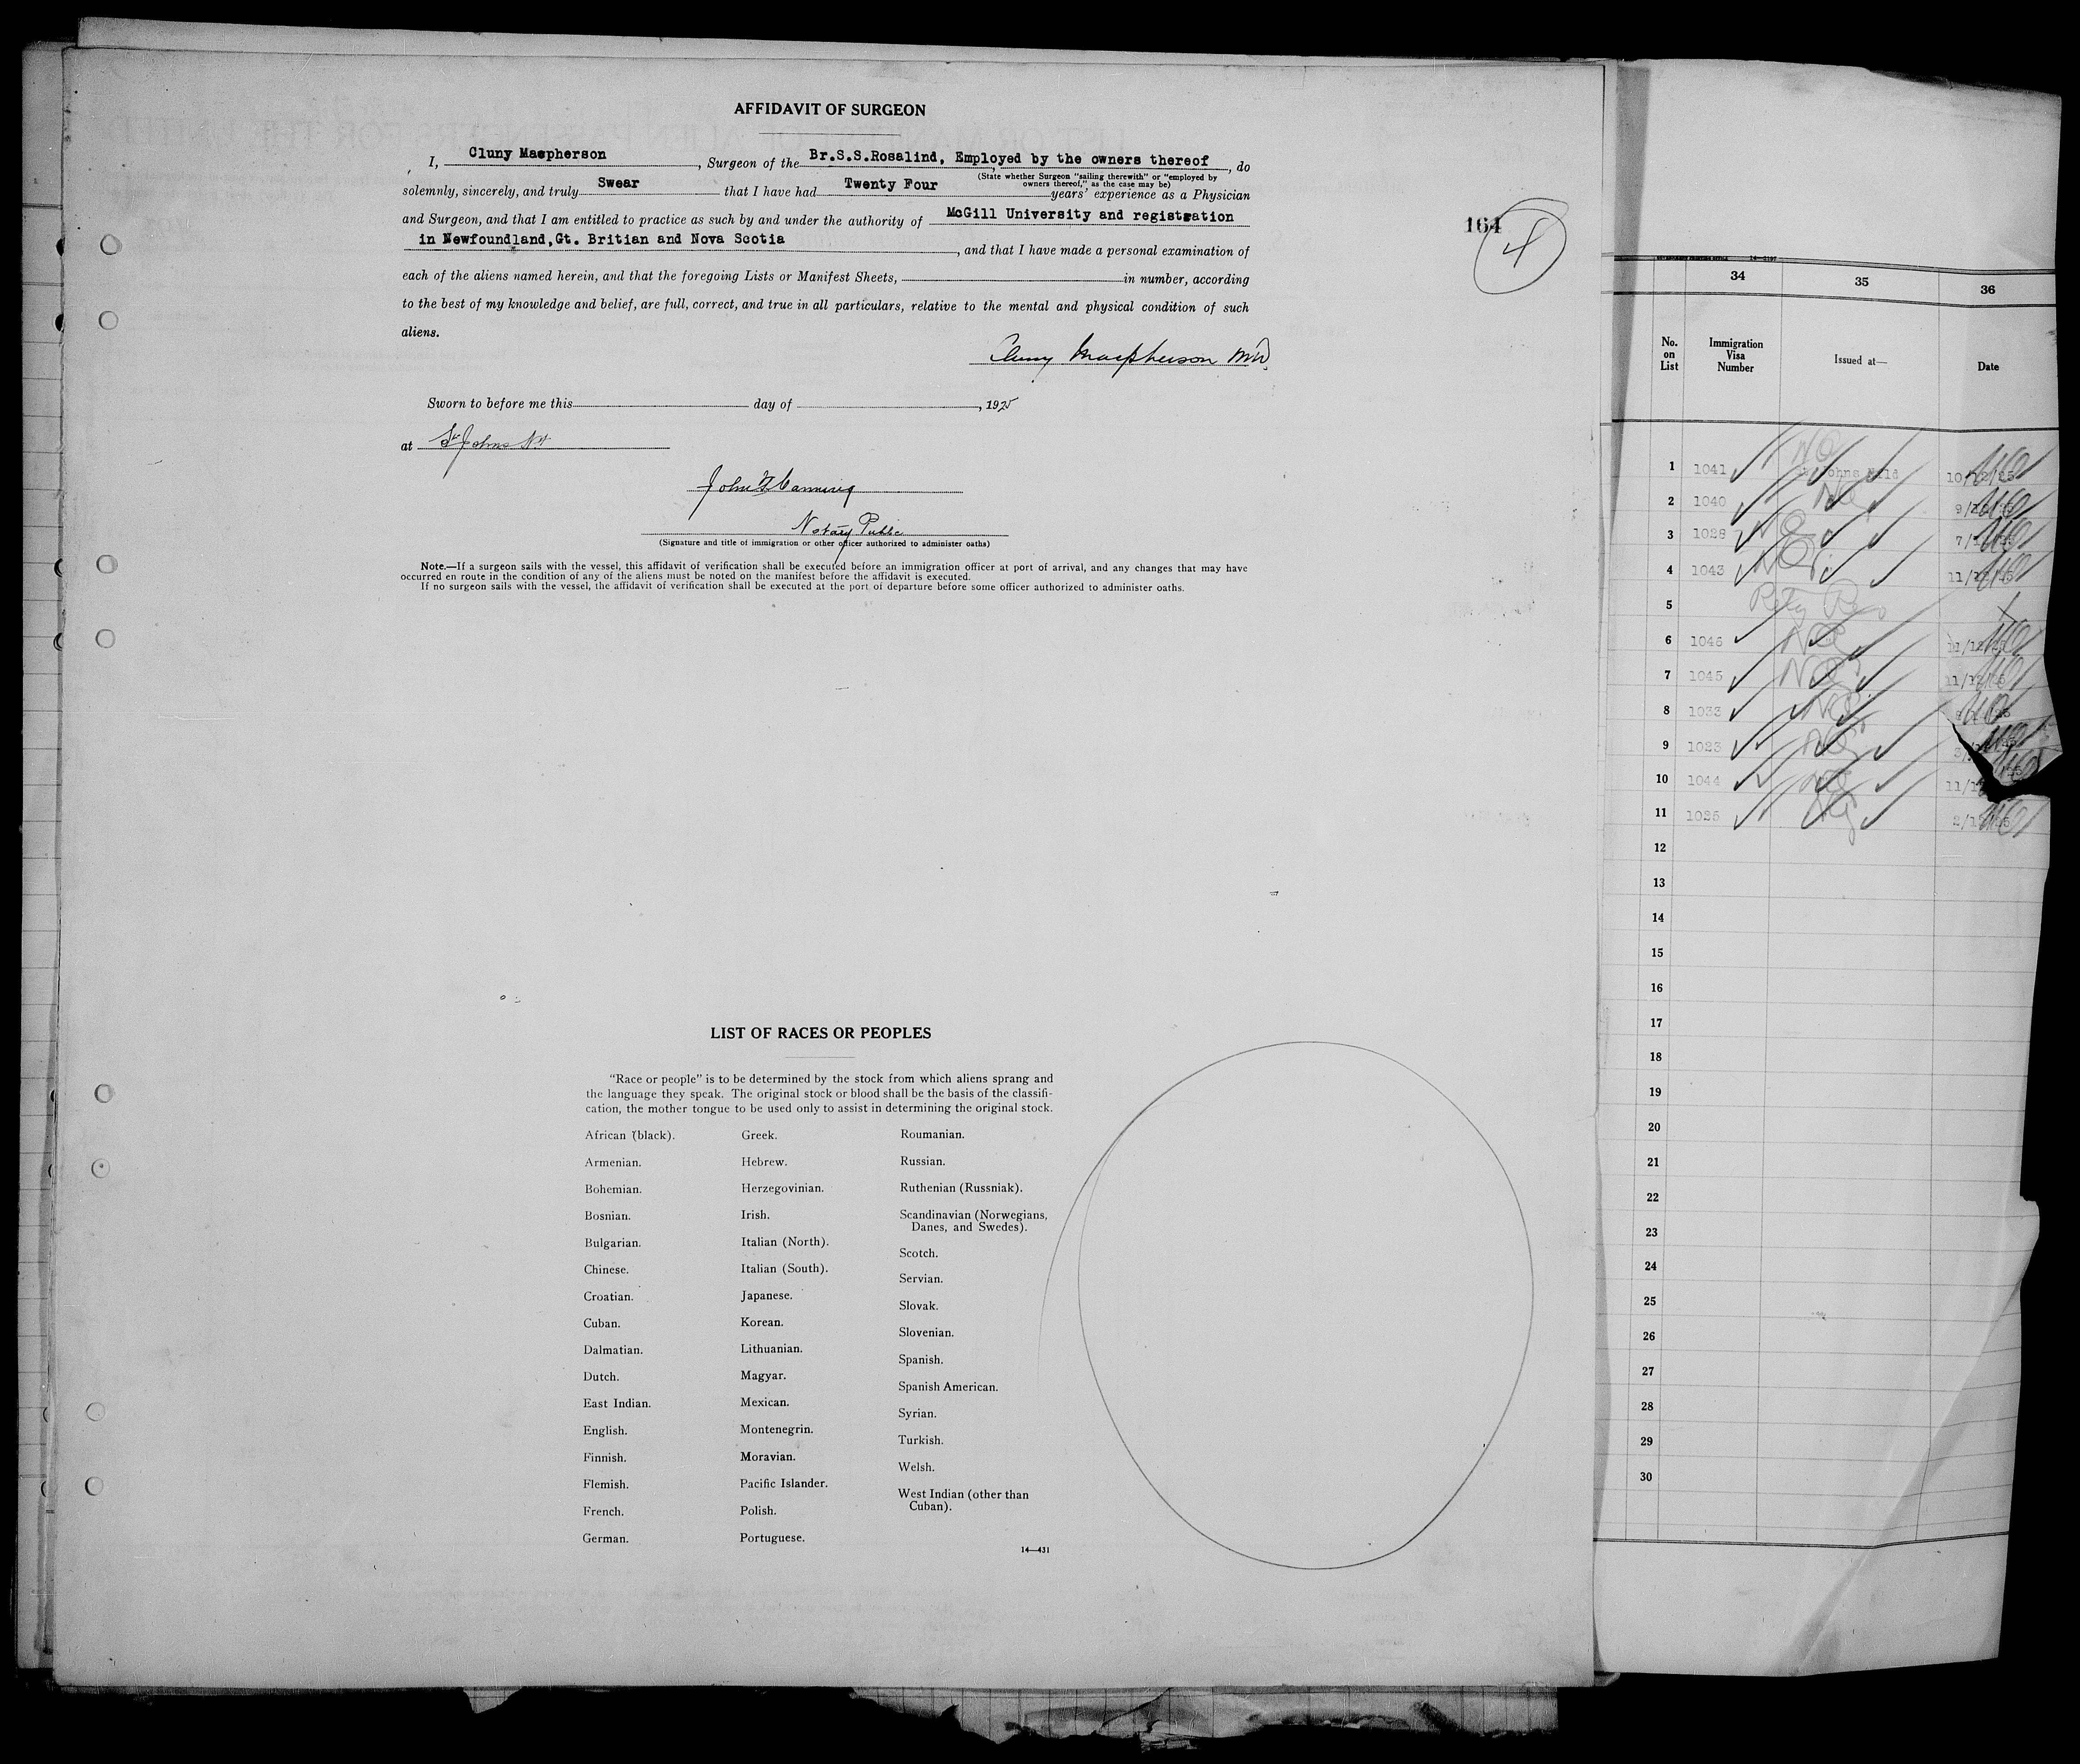 AFFIDAVIT OF SURGEON
I, Cluny Macpherson, Surgeon of the Br.S.S.Rosalind, Employed by the owners thereof, do
(State whether Surgeon "sailing therewith" or "employed by
owners thereof," as the case may be)
solemnly, sincerely, and truly Swear that I have had Twenty Four years' experience as a Physician
and Surgeon, and that I am entitled to practice as such by and under the authority of McGill University and registration
in Newfoundland,Gt. Britian and Nova Scotia, and that I have made a personal examination of
each of the aliens named herein, and that the foregoing Lists or Manifest Sheets, in number, according
to the best of my knowledge and belief, are full, correct, and true in all particulars, relative to the mental and physical condition of such
aliens.
Cluny Macpherson MD
Sworn to before me this day of , 1925
at St Johns Nf
John
Notary Public
(Signature and title of immigration or other officer authorized to administer oaths)
Note.—If a surgeon sails with the vessel, this affidavit of verification shall be executed before an immigration officer at port of arrival, and any changes that may have
occurred en route in the condition of any of the aliens must be noted on the manifest before the affidavit is executed.
If no surgeon sails with the vessel, the affidavit of verification shall be executed at the port of departure before some officer authorized to administer oaths.
164
4
LIST OF RACES OR PEOPLES
"Race or people" is to be determined by the stock from which aliens sprang and
the language they speak. The original stock or blood shall be the basis of the classifi-
cation, the mother tongue to be used only to assist in determining the original stock.
African (black).
Armenian.
Bohemian.
Bosnian.
Bulgarian.
Chinese.
Croatian.
Cuban.
Dalmatian.
Dutch.
East Indian.
English.
Finnish.
Flemish.
French.
German.
Greek.
Hebrew.
Herzegovinian.
Irish.
Italian (North).
Italian (South).
Japanese.
Korean.
Lithuanian.
Magyar.
Mexican.
Montenegrin.
Moravian.
Pacific Islander.
Polish.
Portuguese.
Roumanian.
Russian.
Ruthenian (Russniak).
Scandinavian (Norwegians,
Danes, and Swedes).
Scotch.
Servian.
Slovak.
Slovenian.
Spanish.
Spanish American.
Syrian.
Turkish.
Welsh.
West Indian (other than
Cuban).
14—431
34 35 36
No.
on
List
Immigration
Visa
Number
Issued at—
Date
1 1041 10/12/25
2 1040
3 1028
4 1043
5
6 1046
7 1045 11/12/25
8 1033
9 1023
10 1044
11 1025
12
13
14
15
16
17
18
19
20
21
22
23
24
25
26
27
28
29
30